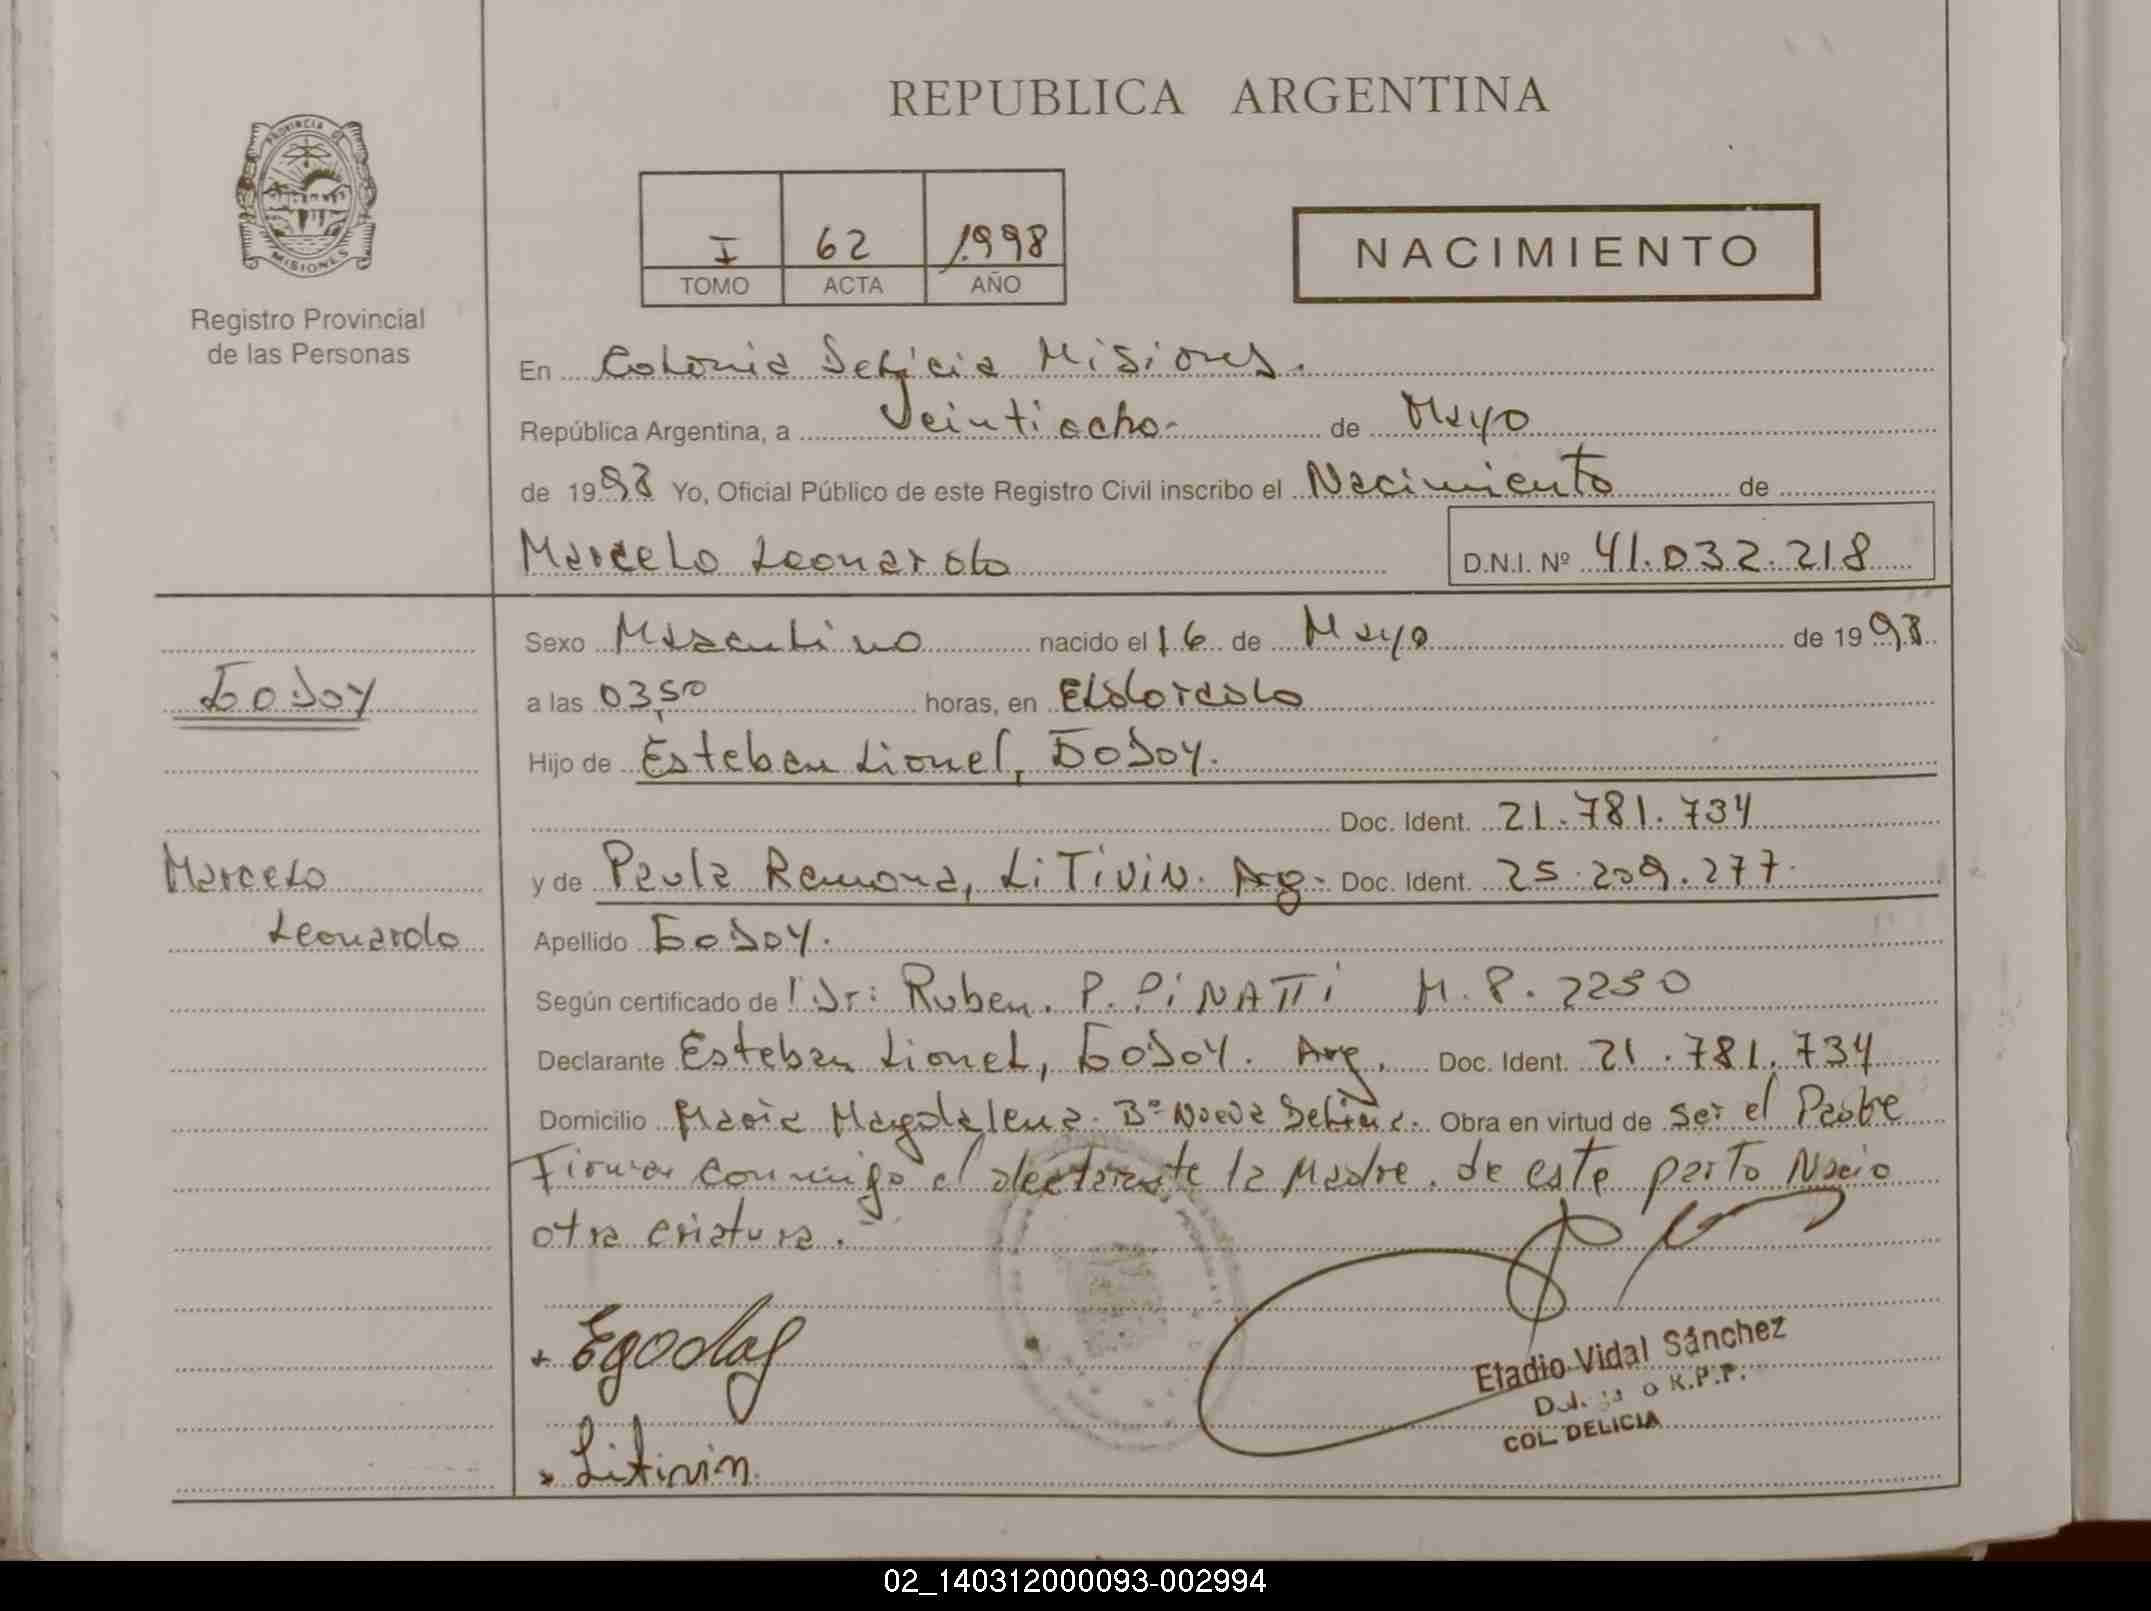 PROVINCIA DE
MISIONES
Registro Provincial
de las Personas
REPUBLICA ARGENTINA
I 62 1998
TOMO ACTA AÑO
NACIMIENTO
En Colonia Delicia Misiones.
República Argentina, a Veintiocho de Mayo
de 1998 Yo, Oficial Público de este Registro Civil inscribo el Nacimiento de
Marcelo Leonardo D.N.I. Nº 41.032.218
Sexo Masculino nacido el 16 de Mayo de 1998
Godoy
a las 03,50 horas, en Eldorado
Hijo de Esteban Lionel, Godoy.
Doc. Ident. 21.781.734
Marcelo
Leonardo
y de Paula Ramona, LiTiviN. Arg. Doc. Ident. 25.209.277.
Apellido Godoy.
Según certificado de Dr: Ruben. P. PiNATTi M.P. 2250
Declarante Esteban Lionel, Godoy. Arg. Doc. Ident. 21.781.734
Domicilio Maria Magdalena. Bº Nueva Delicia. Obra en virtud de ser el Padre
Firman conmigo el declarante la Madre. de este parto Nacio
otra criatura.-
Egodoy
Litivin
Eladio Vidal Sánchez
R.P.P.
COL. DELICIA
02_140312000093-002994